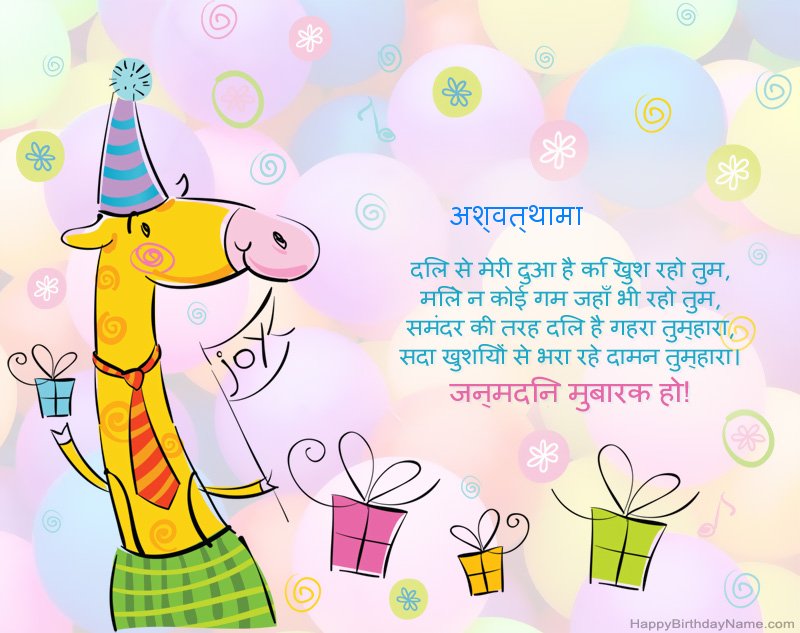 अश्वत्थामा
दिल से मेरी दुआ है कि खुश रहो तुम,
मिले न कोई गम जहाँ भी रहो तुम,
समंदर की तरह दिल है गहरा तुम्हारा,
सदा खुशियों से भरा रहे दामन तुम्हारा।
joy
जन्मदिन मुबारक हो!
HappyBirthdayName.com